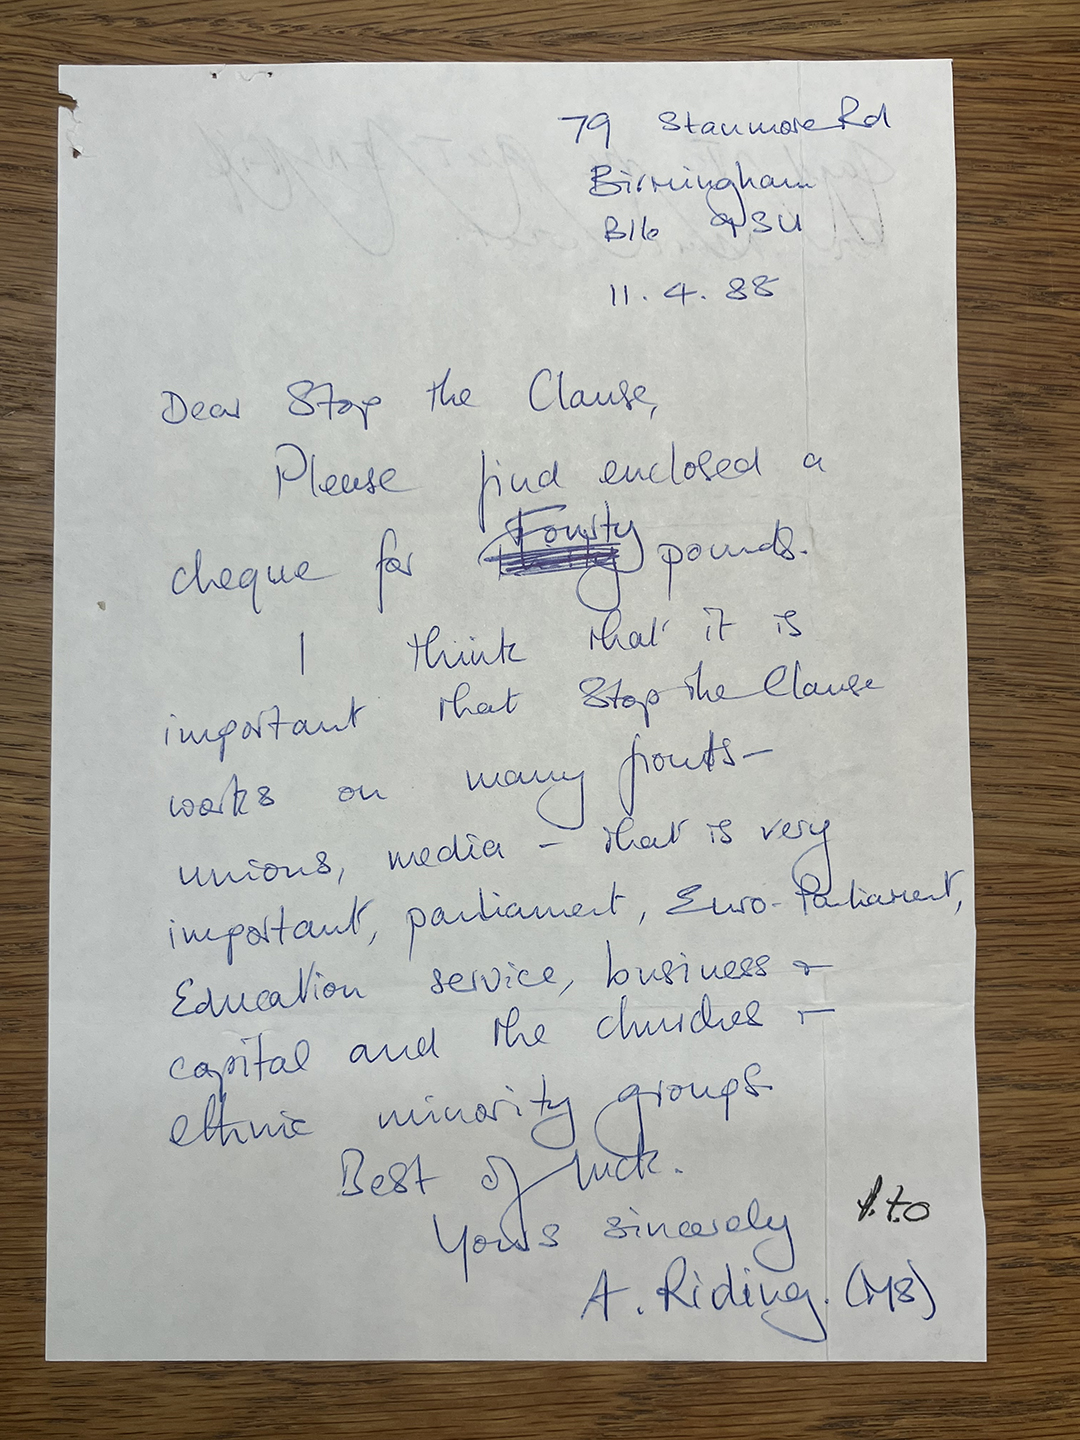 79 Stanmore Rd
Birmingham
B16 9SU
11. 4. 88
Dear Stop the Clause,
Please find enclosed a
cheque for Fourty pounds.
I think that it is
important that Stop the Clause
works on many fronts –
unions, media – that is very
important, parliament, Euro-Parliament,
Education service, business &
capital and the churches –
ethnic minority groups
Best of luck.
Yours sincerely
P.t.o
A. Riding. (Ms)